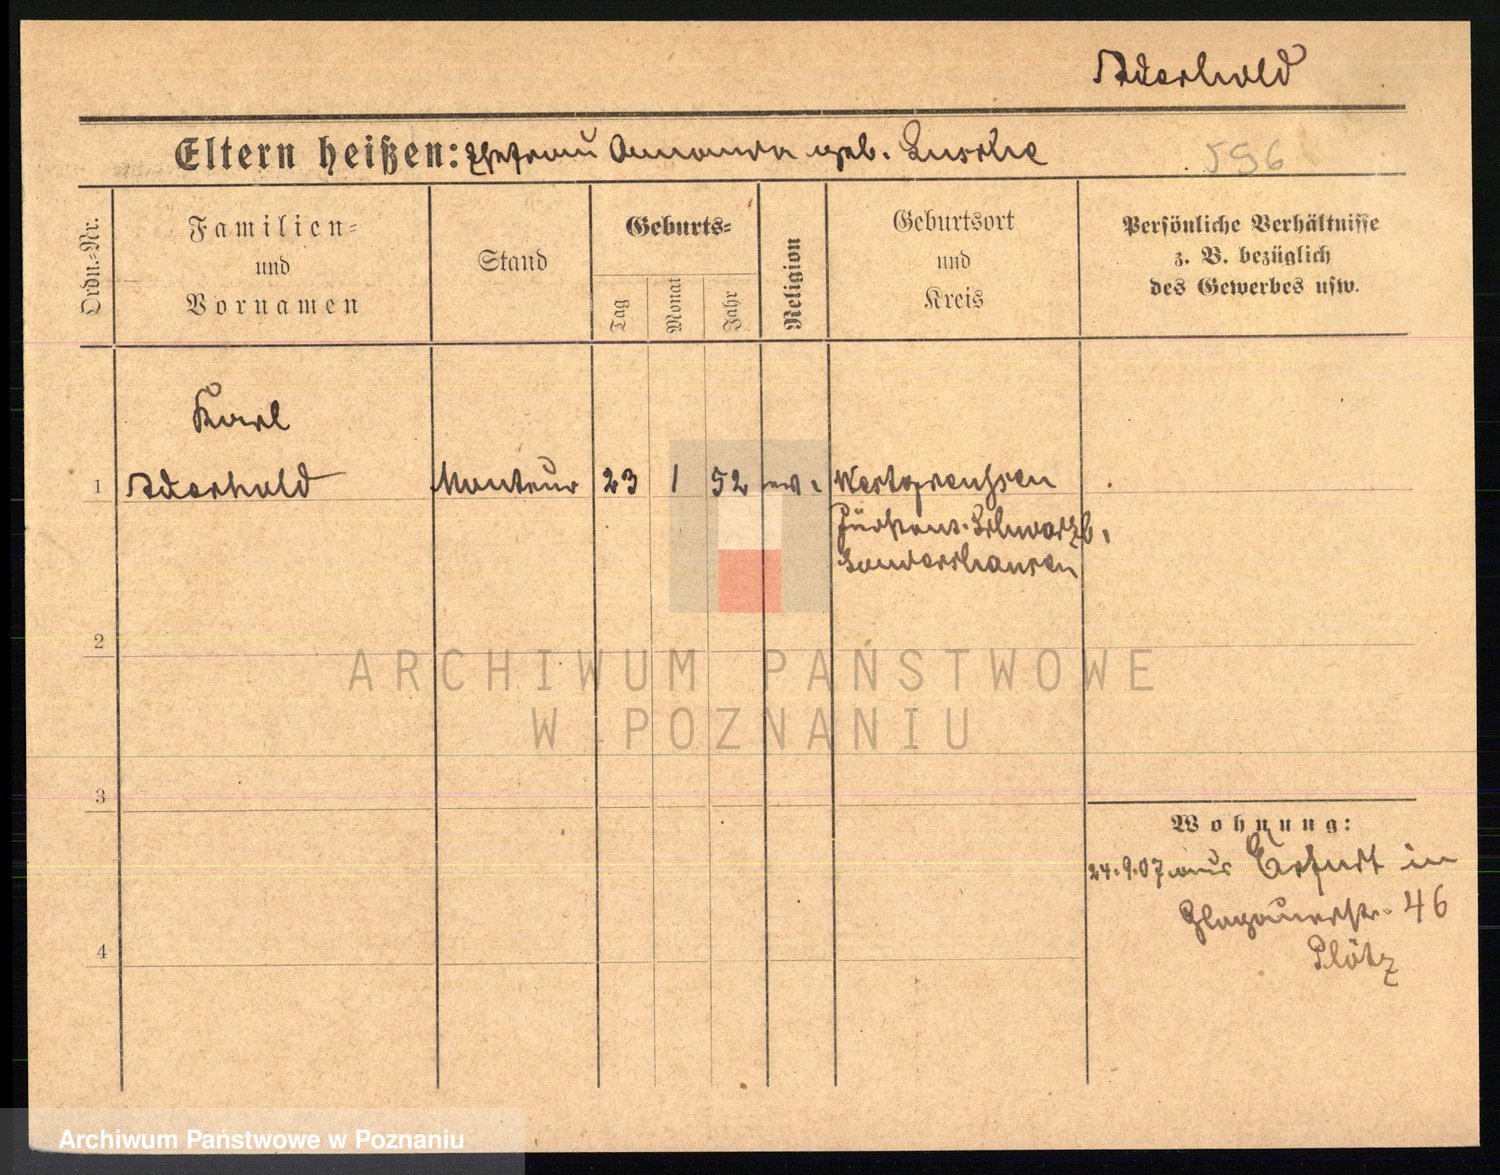 Aderhold
Eltern heißen: Ehefrau Amanda geb. Lusche
596
Ordn.-Nr.
Familien-
und
Vornamen
Stand
Geburts-
Tag
Monat
Jahr
Religion
Geburtsort
und
Kreis
Persönliche Verhältnisse
z. B. bezüglich
des Gewerbes usw.
Karl
1 Aderhold Monteur 23 1 52 ev. Westgreußen
Fürstent. Schwarzb.
Sondershausen
2
ARCHIWUM PAŃSTWOWE
W POZNANIU
3
Wohnung:
24.9.07 aus Erfurt in
Glogauerstr. 46
Plötz
4
Archiwum Państwowe w Poznaniu